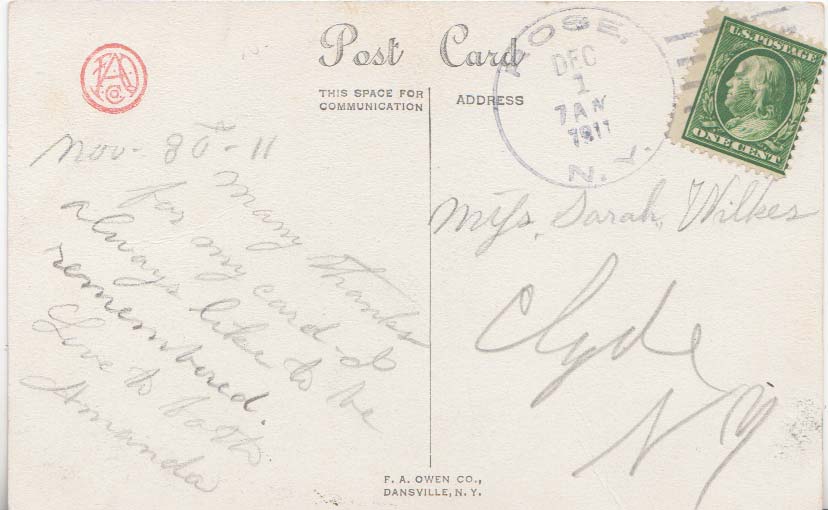 Post Card
THIS SPACE FOR
COMMUNICATION
ADDRESS
ROSE,
DEC
1
7 AM
1911
N.Y.
U.S. POSTAGE
ONE CENT
Nov. 30 - 11
Many thanks
for my card - I
always like to be
remembered.
Love to both
Amanda
Miss, Sarah, Wilkes
Clyde
N Y
F. A. OWEN CO.,
DANSVILLE, N. Y.